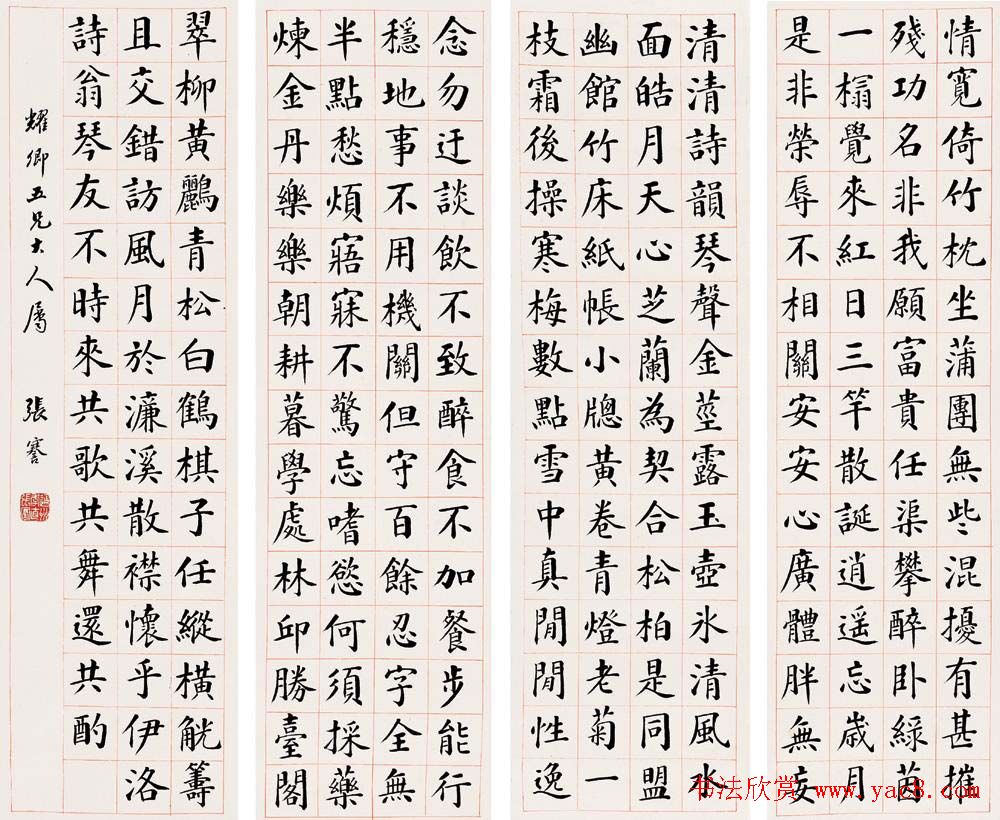 情寬倚竹枕坐蒲團無些混擾有甚摧
殘功名非我願富貴任渠攀醉卧綠茵
一榻覺來紅日三竿散誕逍遥忘歲月
是非榮辱不相關安安心廣體胖無妄
清清詩韻琴聲金莖露玉壺冰清風水
面皓月天心芝蘭為契合松柏是同盟
幽館竹床紙帳小牕黃卷青燈老菊一
枝霜後操寒梅數點雪中真閒閒性逸
念勿迂談飲不致醉食不加餐步能行
穩地事不用機關但守百餘忍字全無
半點愁煩寤寐不驚忘嗜慾何須採藥
煉金丹樂樂朝耕暮學處林邱勝臺閣
翠柳黃鸝青松白鶴棋子任縱橫觥籌
且交錯訪風月於濂溪散襟懷乎伊洛
詩翁琴友不時來共歌共舞還共酌
耀卿五兄大人屬
張謇
书法欣赏 www.yac8.com